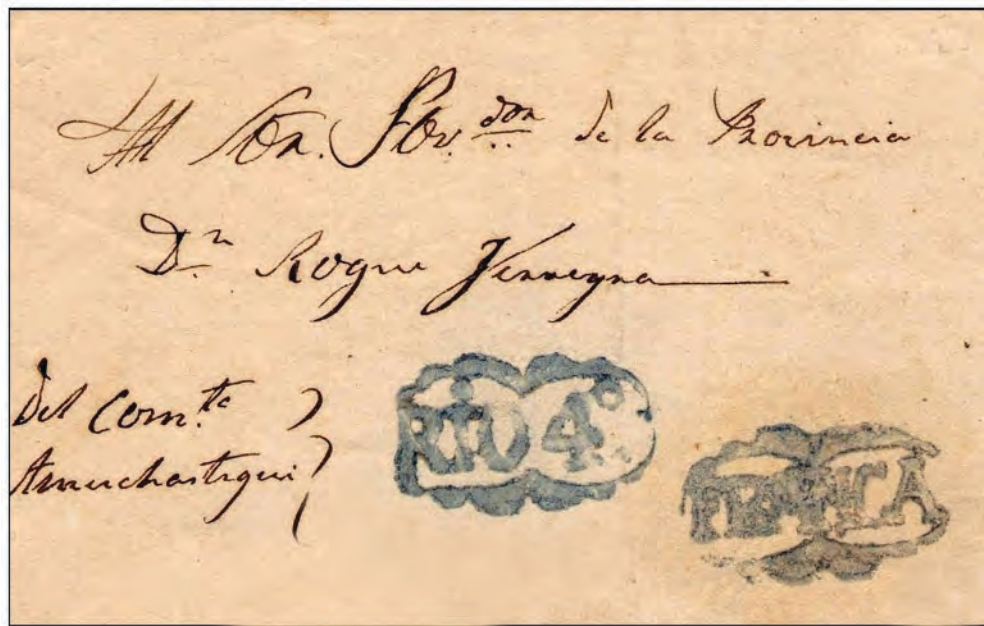 Al Sor. Gov.dor de la Provincia
Dn Roque Ferreyra
del Com.te
Amuchastegui
RIO 4º
FRANCA